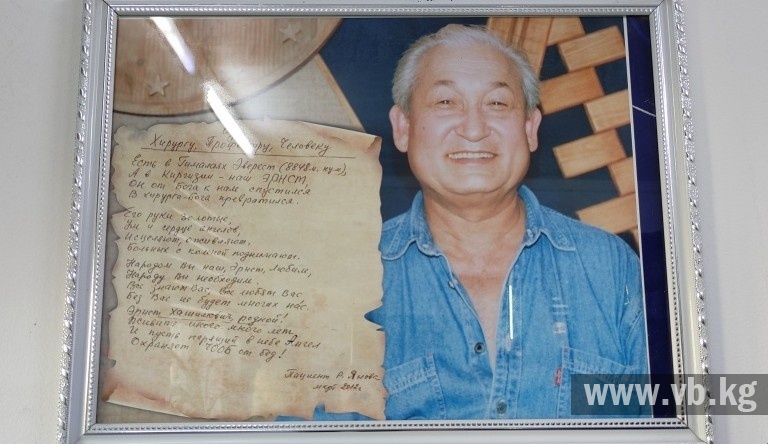 Хирургу, Профессору, Человеку
Есть в Гималаях Эверест (8848 м,
А в Киргизии - наш ЭРНСТ,
Он от Бога к нам опустился
В хирурга-Бога превратился.
Его руки золотые,
Ум и сердце ангелов,
Исцеляют, оживляют,
Больных с камней поднимают.
Народом Вы наш, Эрнст, любим,
Народу Вы необходим
Все знают Вас, все любят Вас
Без Вас не будет многих нас.
Эрнст Хашимович, родной!
Живите много много лет
И пусть парящий в небе Ангел
Охраняет от бед!
Пациент Р.
2012г.
www.vb.kg